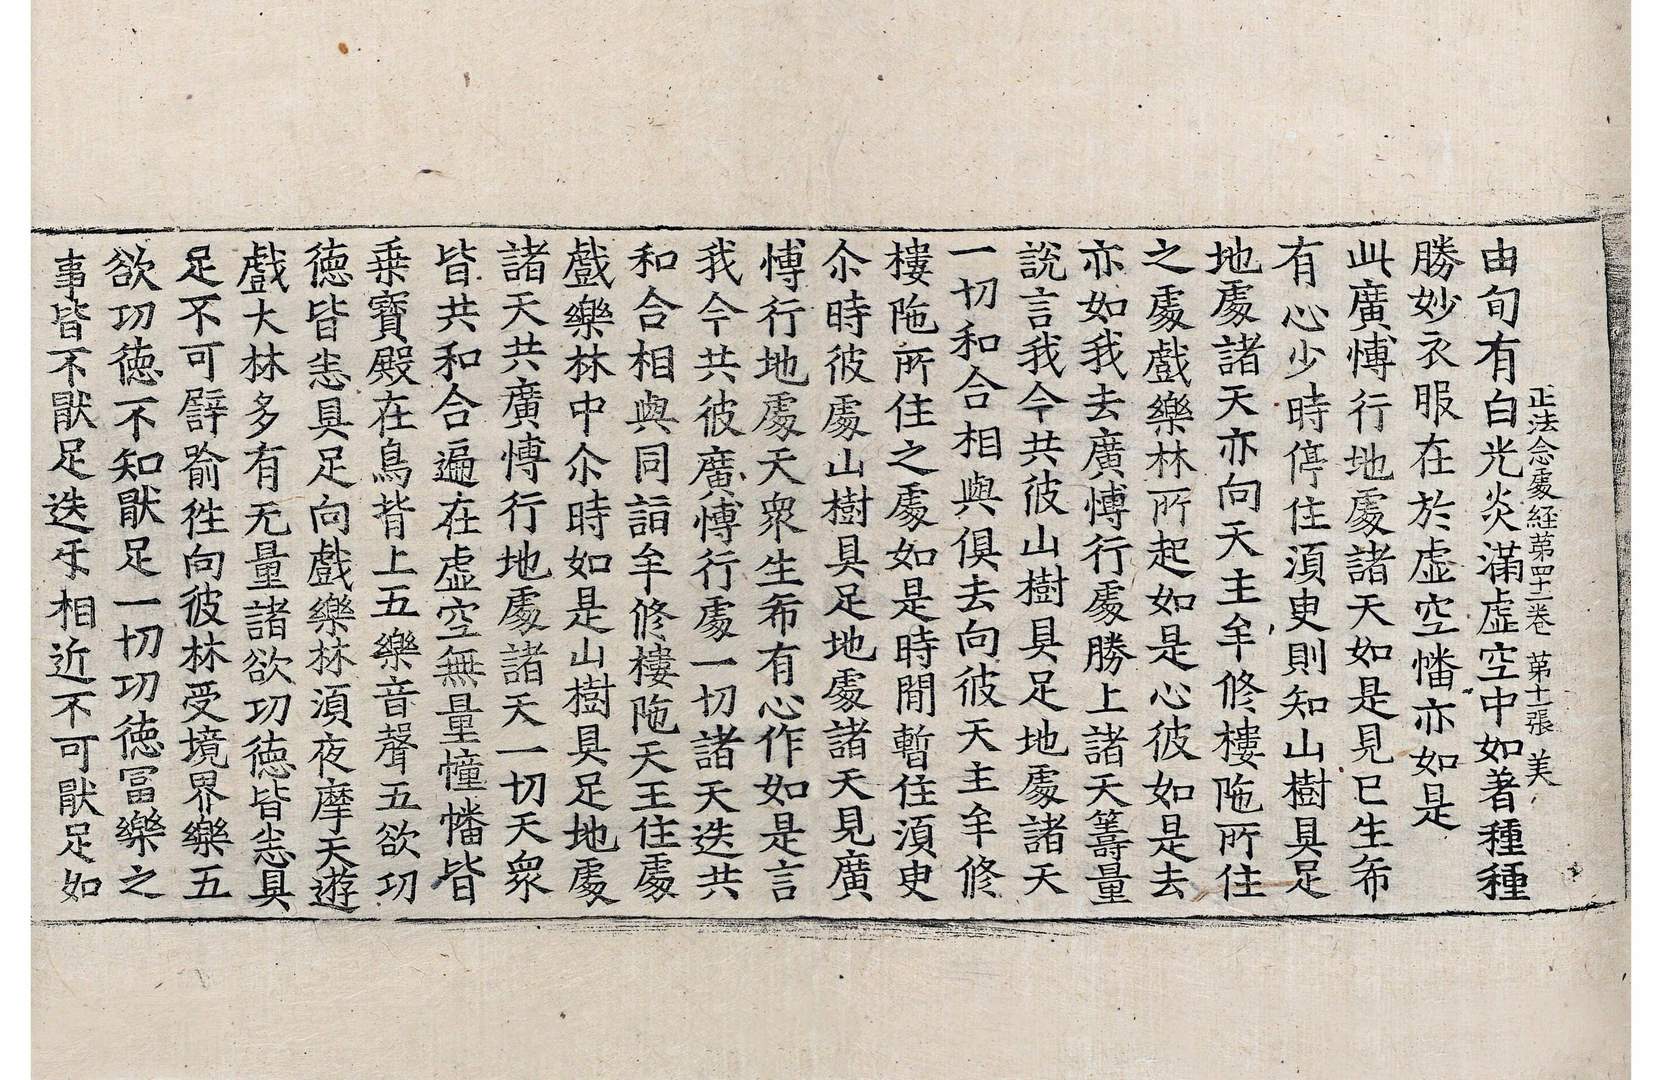 正法念處経第四十一卷 第十二張 美
由旬有白光炎滿虛空中如著種種
勝妙衣服在於虛空幡亦如是
此廣愽行地處諸天如是見已生希
有心少時停住湏臾則知山樹具足
地處諸天亦向天主牟修樓陁所住
之處戲樂林所起如是心彼如是去
亦如我去廣愽行處勝上諸天籌量
說言我今共彼山樹具足地處諸天
一切和合相與俱去向彼天主牟修
樓陁所住之處如是時間暫住湏臾
尒時彼處山樹具足地處諸天見廣
愽行地處天衆生希有心作如是言
我今共彼廣愽行處一切諸天迭共
和合相與同詣牟修樓陁天王住處
戲樂林中尒時如是山樹具足地處
諸天共廣愽行地處諸天一切天衆
皆共和合遍在虛空無量憧幡皆
乗寶殿在鳥背上五樂音聲五欲功
徳皆悉具足向戲樂林湏夜摩天遊
戲大林多有无量諸欲功徳皆悉具
足不可譬喻徃向彼林受境界樂五
欲功徳不知猒足一切功徳冨樂之
事皆不猒足迭㸦相近不可猒足如